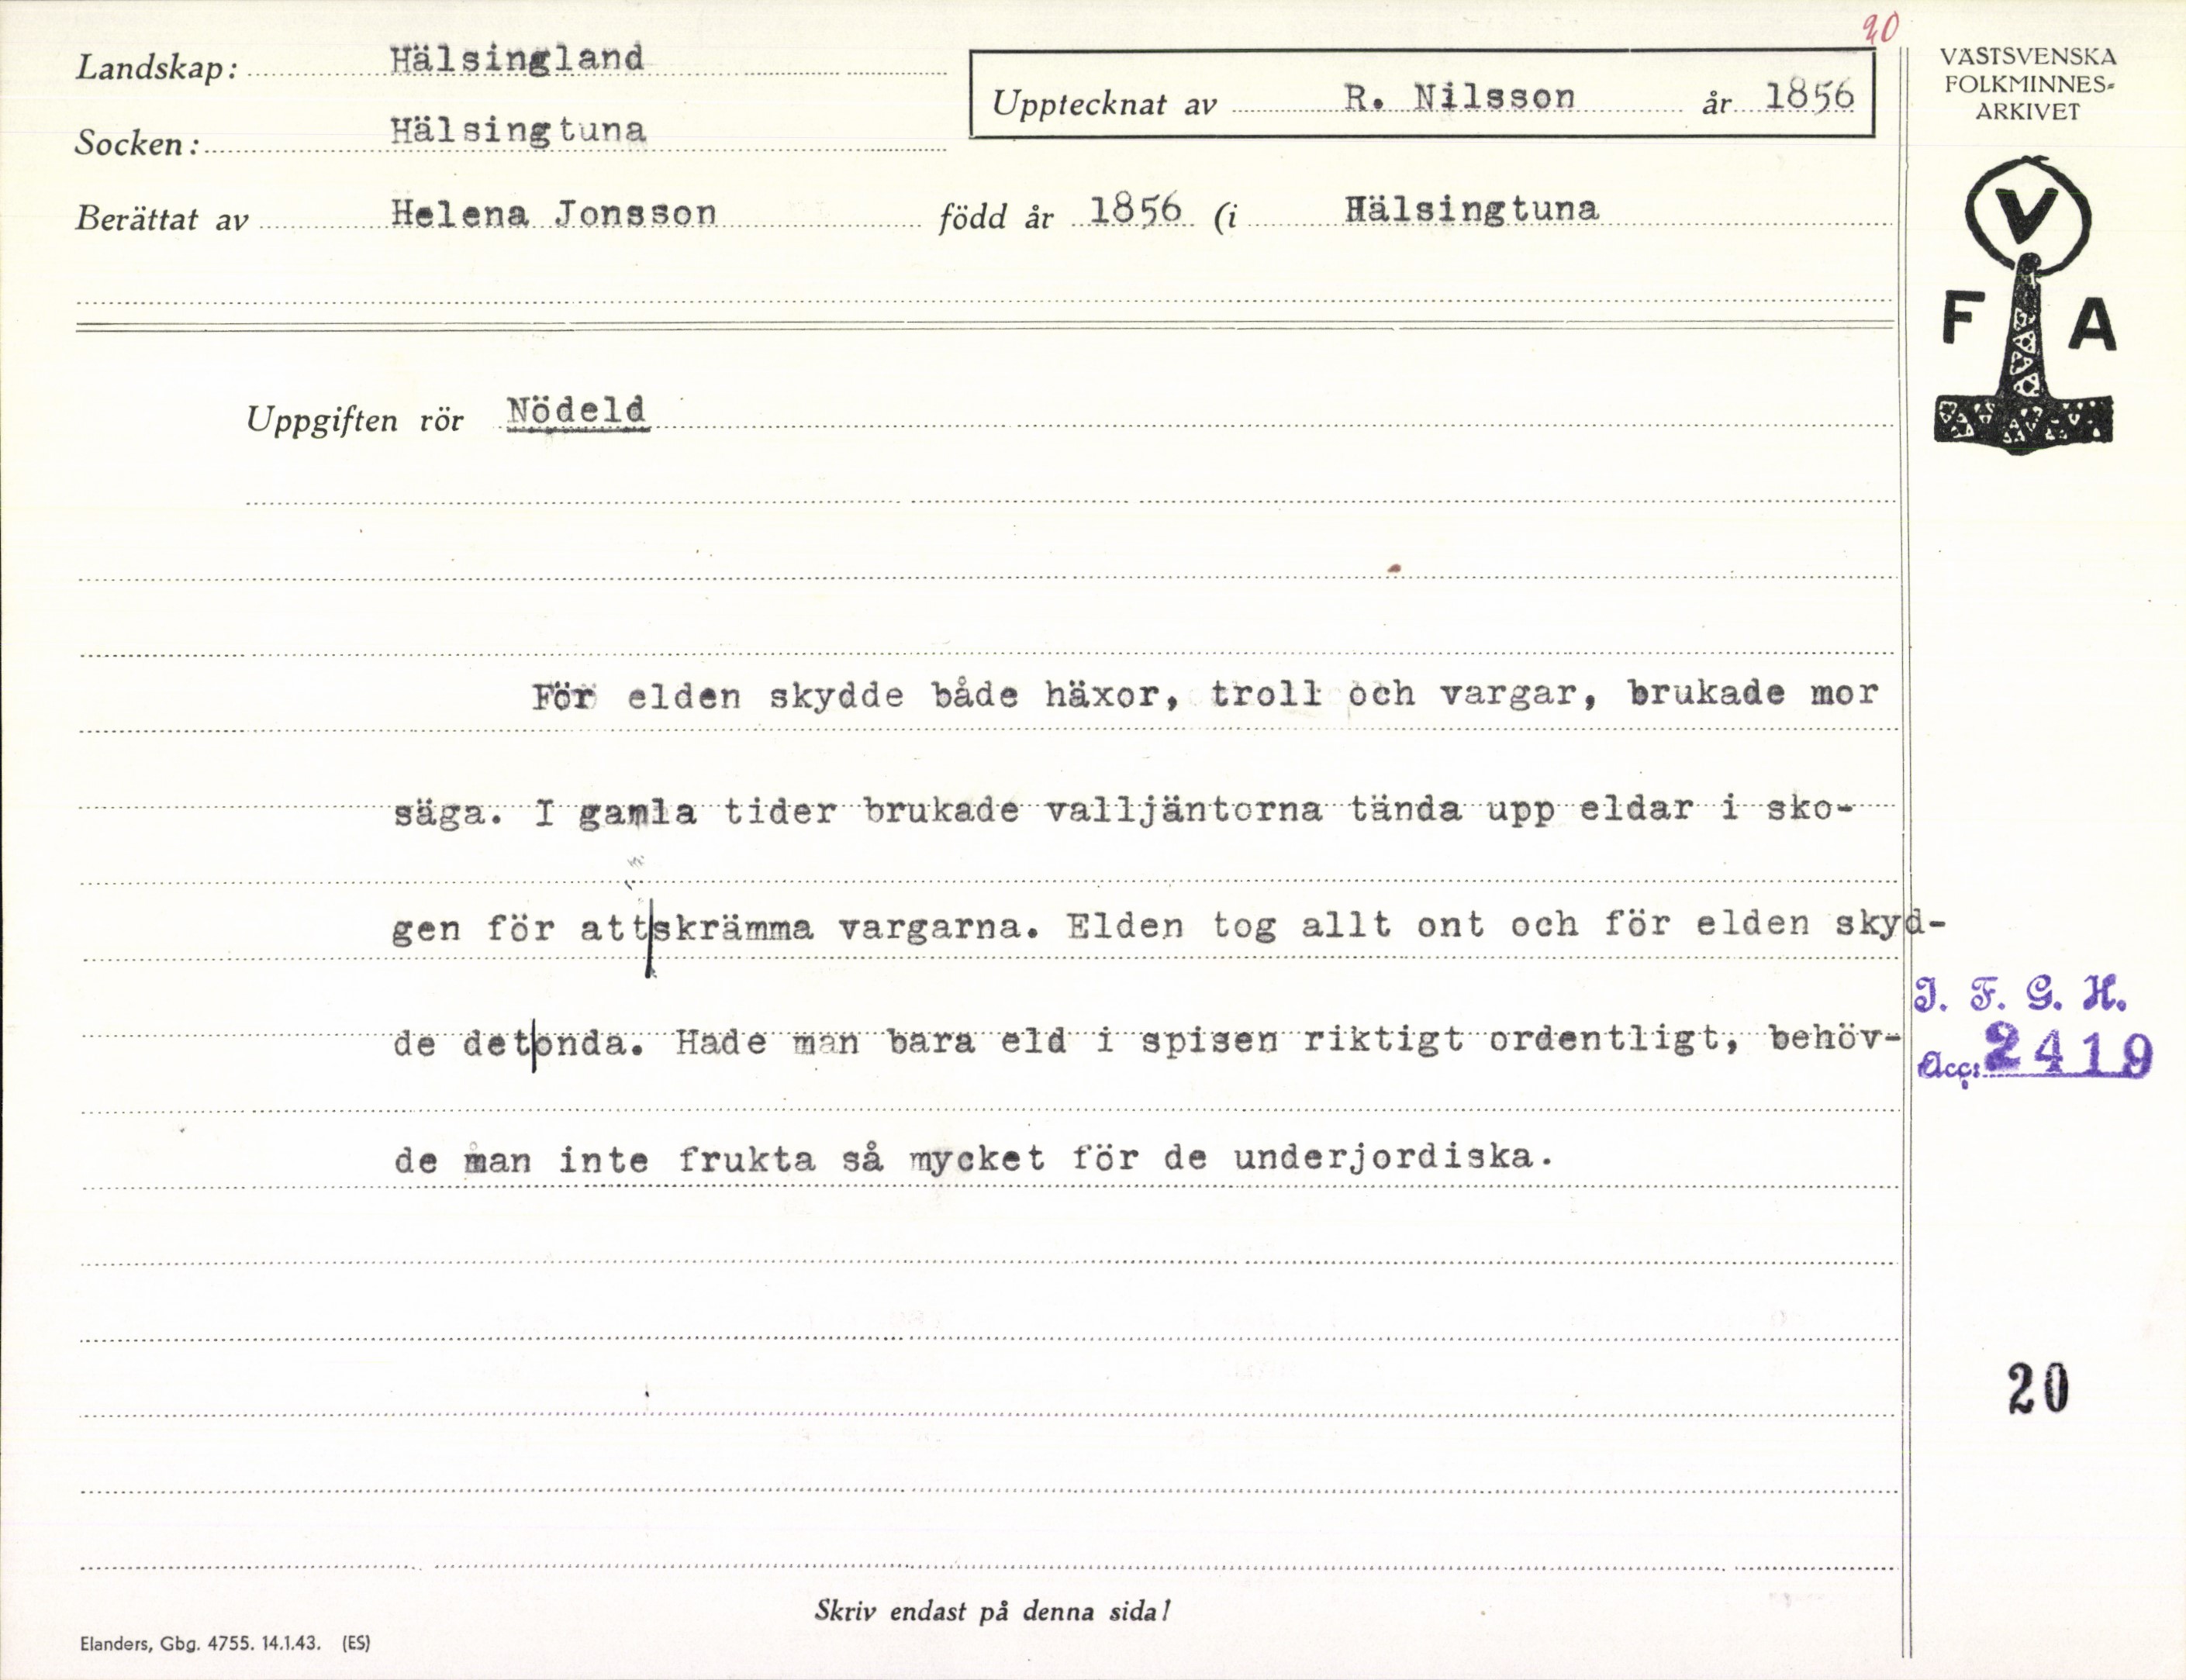 20
Landskap: Hälsingland
Upptecknat av R. Nilsson år 1856
Socken: Hälsingtuna
Berättat av Helena Jonsson född år 1856 (i Hälsingtuna
VÄSTSVENSKA
FOLKMINNES-
ARKIVET
V
F A
Uppgiften rör Nödeld
För elden skydde både häxor, troll och vargar, brukade mor
säga. I gamla tider brukade valljäntorna tända upp eldar i sko-
gen för att|skrämma vargarna. Elden tog allt ont och för elden skyd-
de det|onda. Hade man bara eld i spisen riktigt ordentligt, behöv-
de man inte frukta så mycket för de underjordiska.
I. F. G. H.
Acc: 2419
20
Skriv endast på denna sida!
Elanders, Gbg. 4755. 14.1.43. (ES)